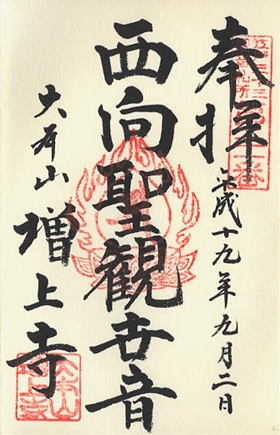 奉拝
平成十九年九月二日
西向聖観世音
大本山
増上寺